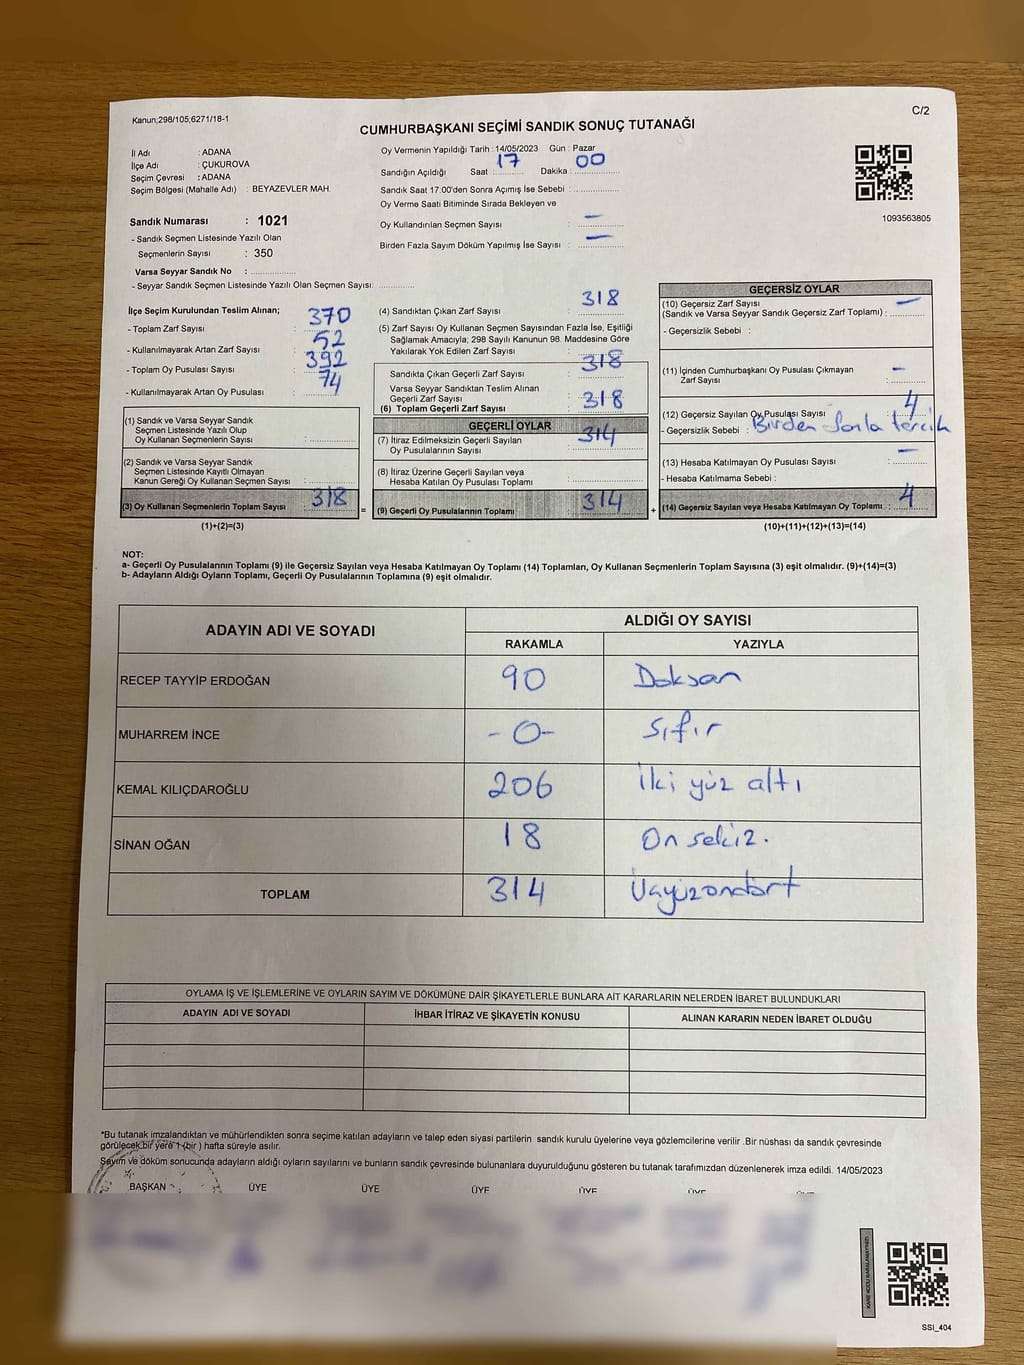 Kanun;298/105,6271/18-1
C/2
CUMHURBAŞKANI SEÇİMİ SANDIK SONUÇ TUTANAĞI
İl Adı : ADANA
İlçe Adı : ÇUKUROVA
Seçim Çevresi : ADANA
Seçim Bölgesi (Mahalle Adı) : BEYAZEVLER MAH.
Oy Vermenin Yapıldığı Tarih : 14/05/2023 Gün : Pazar
Sandığın Açıldığı Saat : 17 Dakika : 00
Sandık Saat 17:00'den Sonra Açımış İse Sebebi :
Oy Verme Saati Bitiminde Sırada Bekleyen ve
Oy Kullandırılan Seçmen Sayısı : –
Birden Fazla Sayım Döküm Yapılmış İse Sayısı : –
1093563805
Sandık Numarası : 1021
- Sandık Seçmen Listesinde Yazılı Olan
Seçmenlerin Sayısı : 350
Varsa Seyyar Sandık No :
- Seyyar Sandık Seçmen Listesinde Yazılı Olan Seçmen Sayısı:
İlçe Seçim Kurulundan Teslim Alınan;
- Toplam Zarf Sayısı : 370
- Kullanılmayarak Artan Zarf Sayısı : 52
- Toplam Oy Pusulası Sayısı : 392
- Kullanılmayarak Artan Oy Pusulası : 74
(1) Sandık ve Varsa Seyyar Sandık
Seçmen Listesinde Yazılı Olup
Oy Kullanan Seçmenlerin Sayısı :
(2) Sandık ve Varsa Seyyar Sandık
Seçmen Listesinde Kayıtlı Olmayan
Kanun Gereği Oy Kullanan Seçmen Sayısı :
(3) Oy Kullanan Seçmenlerin Toplam Sayısı : 318
(1)+(2)=(3)
(4) Sandıktan Çıkan Zarf Sayısı : 318
(5) Zarf Sayısı Oy Kullanan Seçmen Sayısından Fazla İse, Eşitliği
Sağlamak Amacıyla; 298 Sayılı Kanunun 98. Maddesine Göre
Yakılarak Yok Edilen Zarf Sayısı :
Sandıkta Çıkan Geçerli Zarf Sayısı : 318
Varsa Seyyar Sandıktan Teslim Alınan
Geçerli Zarf Sayısı :
(6) Toplam Geçerli Zarf Sayısı : 318
GEÇERLİ OYLAR
(7) İtiraz Edilmeksizin Geçerli Sayılan
Oy Pusulalarının Sayısı : 314
(8) İtiraz Üzerine Geçerli Sayılan veya
Hesaba Katılan Oy Pusulası Toplamı :
= (9) Geçerli Oy Pusulalarının Toplamı : 314 +
GEÇERSİZ OYLAR
(10) Geçersiz Zarf Sayısı
(Sandık ve Varsa Seyyar Sandık Geçersiz Zarf Toplamı) : –
- Geçersizlik Sebebi :
(11) İçinden Cumhurbaşkanı Oy Pusulası Çıkmayan
Zarf Sayısı : –
(12) Geçersiz Sayılan Oy Pusulası Sayısı : 4
- Geçersizlik Sebebi : Birden fazla tercih
(13) Hesaba Katılmayan Oy Pusulası Sayısı : –
- Hesaba Katılmama Sebebi :
(14) Geçersiz Sayılan veya Hesaba Katılmayan Oy Toplamı : 4
(10)+(11)+(12)+(13)=(14)
NOT:
a- Geçerli Oy Pusulalarının Toplamı (9) ile Geçersiz Sayılan veya Hesaba Katılmayan Oy Toplamı (14) Toplamları, Oy Kullanan Seçmenlerin Toplam Sayısına (3) eşit olmalıdır. (9)+(14)=(3)
b- Adayların Aldığı Oyların Toplamı, Geçerli Oy Pusulalarının Toplamına (9) eşit olmalıdır.
ADAYIN ADI VE SOYADI ALDIĞI OY SAYISI
RAKAMLA YAZIYLA
RECEP TAYYİP ERDOĞAN 90 Doksan
MUHARREM İNCE -0- sıfır
KEMAL KILIÇDAROĞLU 206 İki yüz altı
SİNAN OĞAN 18 On sekiz.
TOPLAM 314 Üçyüzondört
OYLAMA İŞ VE İŞLEMLERİNE VE OYLARIN SAYIM VE DÖKÜMÜNE DAİR ŞİKAYETLERLE BUNLARA AİT KARARLARIN NELERDEN İBARET BULUNDUKLARI
ADAYIN ADI VE SOYADI İHBAR İTİRAZ VE ŞİKAYETİN KONUSU ALINAN KARARIN NEDEN İBARET OLDUĞU
*Bu tutanak imzalandıktan ve mühürlendikten sonra seçime katılan adayların ve talep eden siyasi partilerin sandık kurulu üyelerine veya gözlemcilerine verilir .Bir nüshası da sandık çevresinde
görülecek bir yere 1 (bir ) hafta süreyle asılır.
Sayım ve döküm sonucunda adayların aldığı oyların sayılarını ve bunların sandık çevresinde bulunanlara duyurulduğunu gösteren bu tutanak tarafımızdan düzenlenerek imza edildi. 14/05/2023
BAŞKAN ÜYE ÜYE ÜYE ÜYE ÜYE
SSI_404